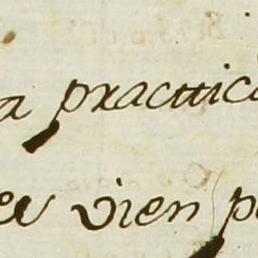 a practica
es vien p